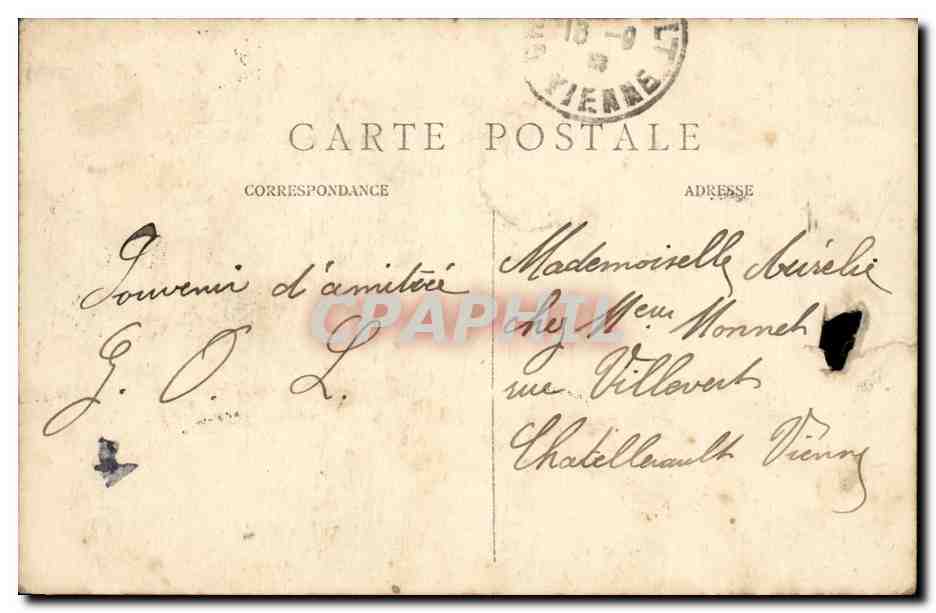 18 -9
LT
VIENNE
CARTE POSTALE
CORRESPONDANCE
ADRESSE
Souvenir d'amitiée
G. O. L.
Mademoiselle Aurélie
chez Meur Monnet
rue Villevert
Chatellerault Vienne
CPAPHIL